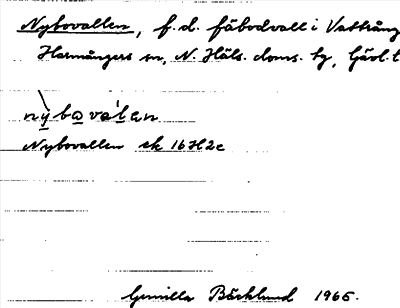 Nybovallen, f.d. fäbodvall i Vattrång
Harmångers sn, N. Häls. doms. tg, Gävl. l
nybovalen
Nybovallen ek 16H2c
Gunilla Bäcklund 1965.